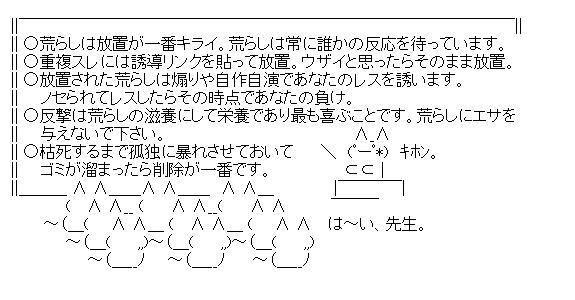 ○荒らしは放置が一番キライ。荒らしは常に誰かの反応を待っています。
○重複スレには誘導リンクを貼って放置。ウザイと思ったらそのまま放置。
○放置された荒らしは煽りや自作自演であなたのレスを誘います。
ノセられてレスしたらその時点であなたの負け。
○反撃は荒らしの滋養にして栄養であり最も喜ぶことです。荒らしにエサを
与えないで下さい。
○枯死するまで孤独に暴れさせておいて ＼ (ﾟーﾟ*) ｷﾎﾝ。
ゴミが溜まったら削除が一番です。
は～い、先生。